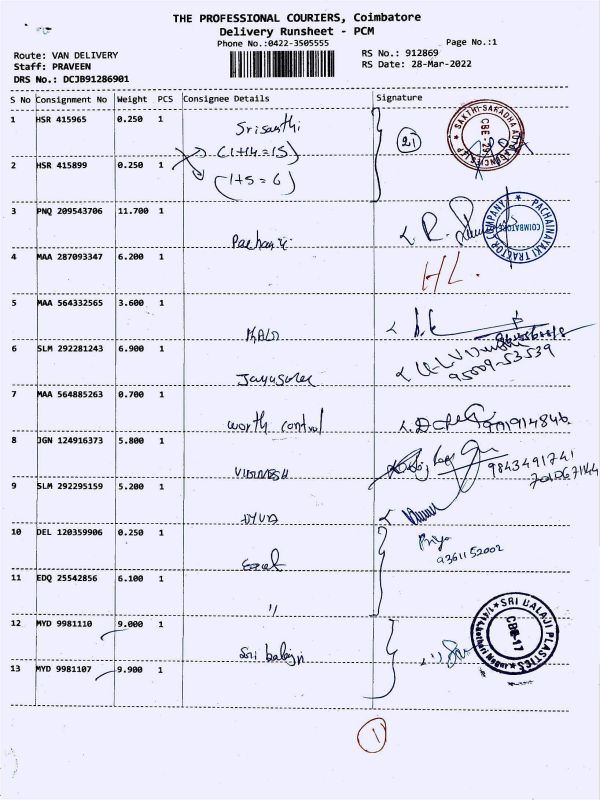 THE PROFESSIONAL COURIERS, Coimbatore
Delivery Runsheet - PCM
Phone No.:0422-3505555
Page No.:1
Route: VAN DELIVERY
RS No.: 912869
Staff: PRAVEEN
RS Date: 28-Mar-2022
DRS No.: DCJB91286901
S No Consignment No Weight PCS Consignee Details Signature
1 HSR 415965 0.250 1
(1+14=15) 21
2 HSR 415899 0.250 1
(1+5=6)
3 PNQ 209543706 11.700 1
PACHAINAYAKI TRACTOR COMPANY COIMBATORE
4 MAA 287093347 6.200 1 HL.
5 MAA 564332565 3.600 1
6 SLM 292281243 6.900 1
95009-53539
7 MAA 564885263 0.700 1
worth control
8 JGN 124916373 5.800 1
9843491741
9 SLM 292295159 5.200 1
10 DEL 120359906 0.250 1 Priya
9361152002
11 EDQ 25542856 6.100 1
"
12 MYD 9981110 9.000 1
Sri balaji
SRI BALAJI PLASTICS CBE-17
13 MYD 9981107 9.900 1
1